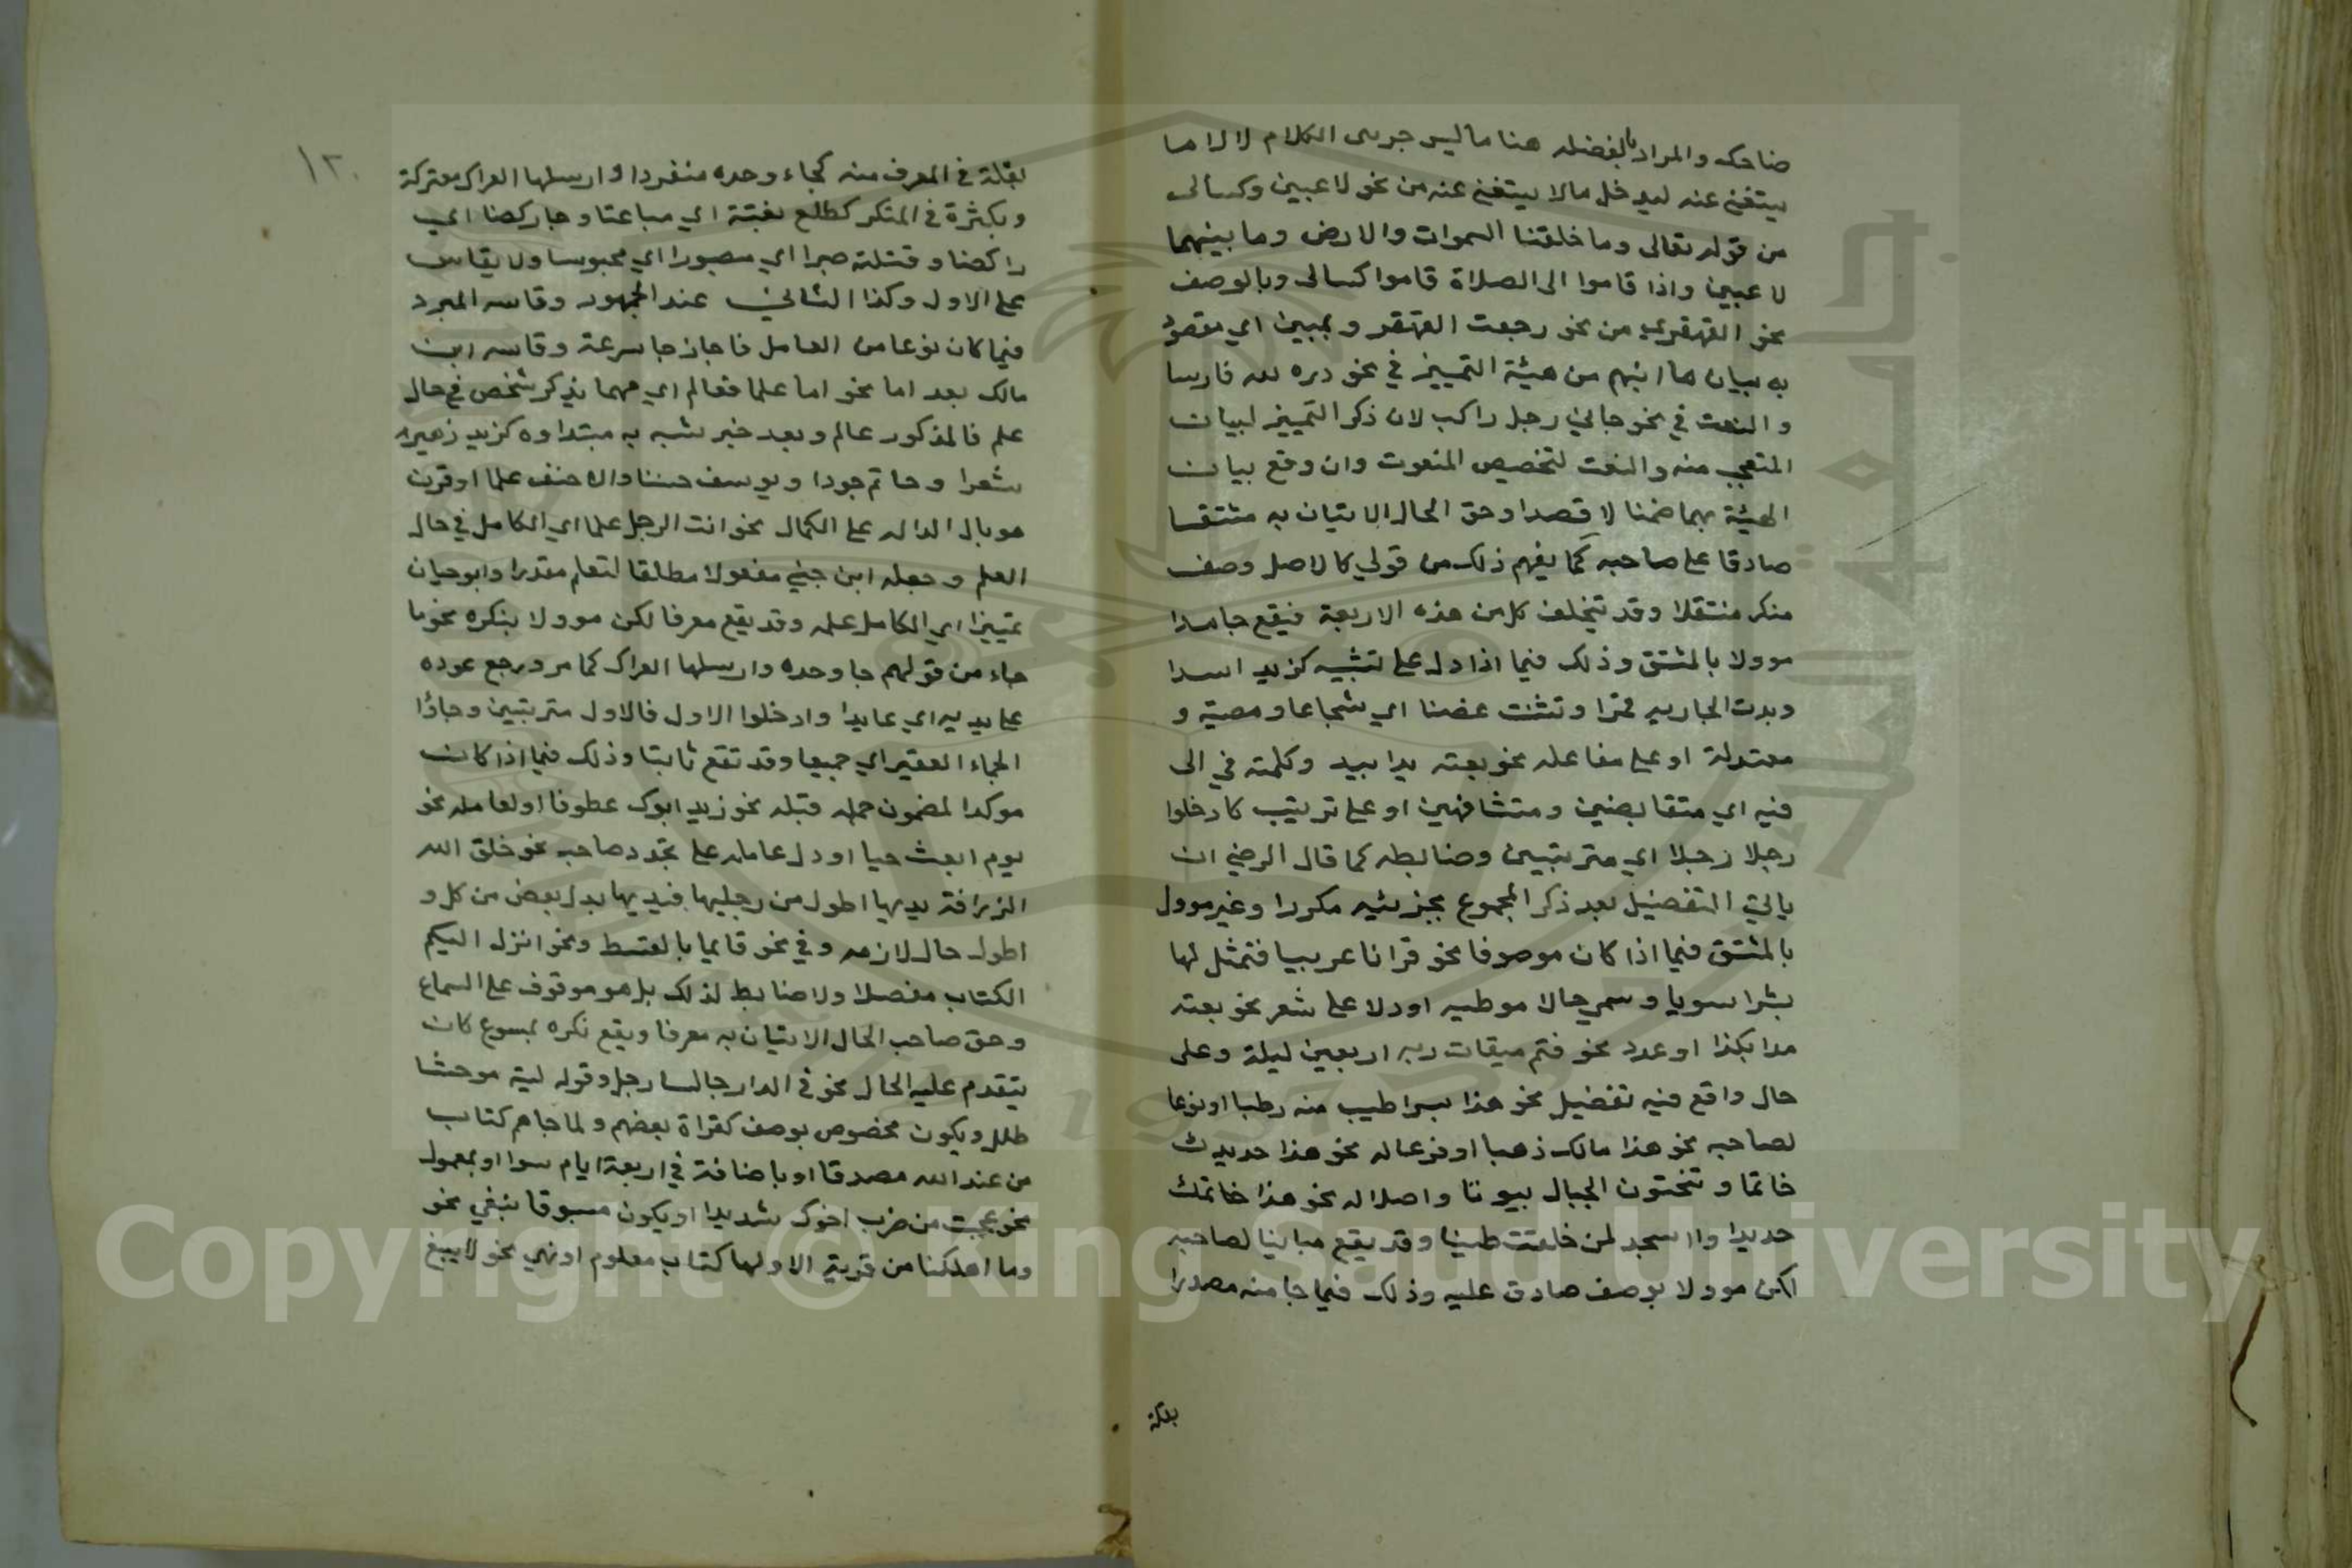 ضاحك والمراد بالفضله هنا ما ليس جزءى الكلام لا لا ما
يستغنى عنه ليدخل مالا يستغنى عنه من نحو لاعبين وكسالى
من قوله تعالى وما خلقنا السموات والارض وما بينهما
لاعبين واذا قاموا الى الصلاة قاموا كسالى وبالوصف
نحو القهقرى من نحو رجعت القهقر وبمبين اي مقصود
به بيان ما انبهم من هيئة التمييز في نحو دره لله فارسا
والنعت في نحو جاني رجل راكب لان ذكر التمييز لبيان
المتعجب منه والنعت لتخصيص المنعوت وان وقع بيان
الهيئة بهما ضمنا لا قصدا وحق الحال الاتيان به مشتقا
صادقا على صاحبه كما يفهم ذلك من قولي كالاصل وصف
منكر منتقلا وقد يتخلف كل من هذه الاربعة فيقع جامدا
موولا بالمشتق وذلك فيما اذا دل على تشبيه كزيد اسدا
وبدت الجاريه قمرا وتثنت غصنا اي شجاعا ومضية و
معتدلة او على مفاعله نحو بعته يدا بيد وكلمته في الى
فيه اي متقابضين ومتشافهين او على ترتيب كادخلوا
رجلا رجلا اي مترتبين وضابطه كما قال الرضي ان
ياتي التفضيل بعد ذكر المجموع بجزئيه مكررا وغير موول
بالمشتق فيما اذا كان موصوفا نحو قرانا عربيا فتمثل لها
بشرا سويا وسمي حالا موطيه او دلا على سعر نحو بعته
مدا بكذا او عدد نحو فتم ميقات ربه اربعين ليلة وعلى
حال واقع فيه تفضيل نحو هذا بسرا طيب منه رطبا او نوعا
لصاحبه نحو هذا مالك ذهبا او فرعا له نحو هذا حديدك
خاتما وتنحتون الجبال بيوتا واصلا له نحو هذا خاتمك
حديدا وااسجد لمن خلقت طينا وقد يقع مباينا لصاحبه
لكن موولا بوصف صادق عليه وذلك فيما جا منه مصدرا
بقلة
١٢٠
بقلة في المعرف منه كجاء وحده منفردا وارسلها العراك معتركة
وبكثرة في المنكر كطلع بغتة اي مباغتا وجا ركضا اي
راكضا وقتلته صبرا اي مصبورا اي محبوسا ولا يقاس
على الاول وكذا الثاني عند الجمهور وقاسه المبرد
فيما كان نوعا من العامل فاجاز جا سرعة وقاسه ابن
مالك بعد اما نحو اما علما فعالم اي مهما يذكر شخص في حال
علم فالمذكور عالم وبعد خبر شبه به مبتداوه كزيد زهير
شعرا وحاتم جودا ويوسف حسنا والاحنف علما او قرن
هو بال الداله على الكمال نحو انت الرجل علما اي الكامل في حال
العلم وجعله ابن جني مفعولا مطلقا لتعلم مقدرا وابو حيان
تمييزا اي الكامل علمه وقد يقع معرفا لكن موولا بنكره نحو ما
جاء من قولهم جا وحده وارسلها العراك كما مر ورجع عوده
على يديه اي عايدا وادخلوا الاول فالاول مترتبين وجاؤا
الجماء الغفير اي جميعا وقد تقع ثابتا وذلك فيما اذا كان
موكدا لمضمون جمله قبله نحو زيد ابوك عطوفا او لعامله نحو
يوم ابعث حيا او دل عامله على تجدد صاحبه نحو خلق الله
الزرافة يديها اطول من رجليها فيديها بدل بعض من كل و
اطول حال لازمه وفي نحو قايما بالقسط ونحو انزل اليكم
الكتاب مفصلا ولا ضابط لذلك بل هو موقوف على السماع
وحق صاحب الحال الاتيان به معرفا ويقع نكره بمسوغ كان
يتقدم عليه الحال نحو في الدار جالسا رجل وقوله لمية موحشا
طلل ويكون مخصوص بوصف كقراة بعضهم ولما جاهم كتاب
من عند الله مصدقا او باضافة في اربعة ايام سوا او بمعمول
نحو عجبت من ضرب اخوك شديدا او يكون مسبوقا بنفي نحو
وما اهلكنا من قرية الا ولها كتاب معلوم او نهي نحو لا يبغ
Copyright © King Saud University